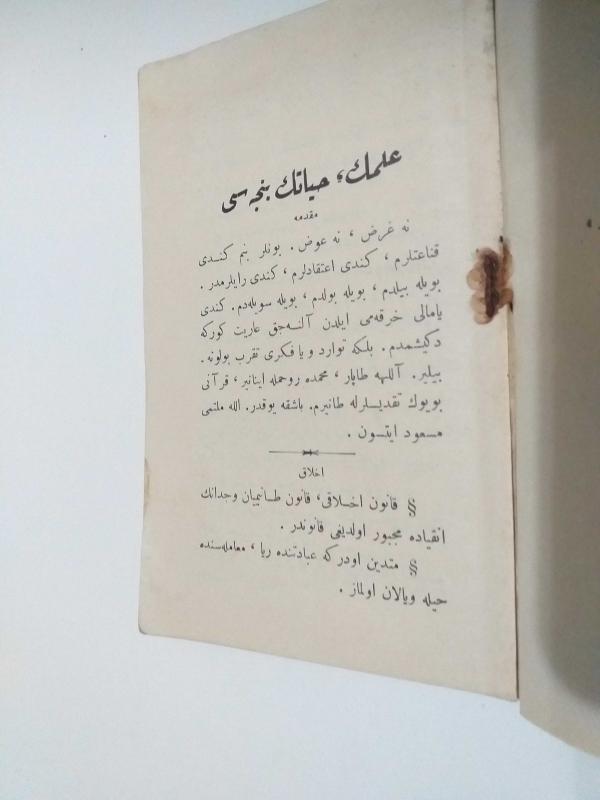 علمك، حياتك پنجه سى
مقدمه
نه غرض ، نه عوض . بونلر بنم كندى
قناعتلرم ، كندى اعتقادلرم ، كندى رايلرمدر .
بويله بيلدم ، بويله بولدم ، بويله سويله‌دم . كندى
يامالى خرقه‌مى ايلدن آلنه‌جق عاريت كوركه
دكيشمدم . بلكه توارد و يا فكرى تقرب بولونه .
بيلير . آللهه طاپار ، محمده روحمله اينانير ، قرآنى
بويوك تقديسلرله طانيرم . باشقه يوقدر . الله ملتمى
مسعود ايتسون .
اخلاق
§ قانون اخلاقى ، قانون طانيميان وجدانك
انقياده مجبور اولديغى قانوندر .
§ متدين اودركه عبادتنده ريا ، معامله‌سنده
حيله ويالان اولماز .